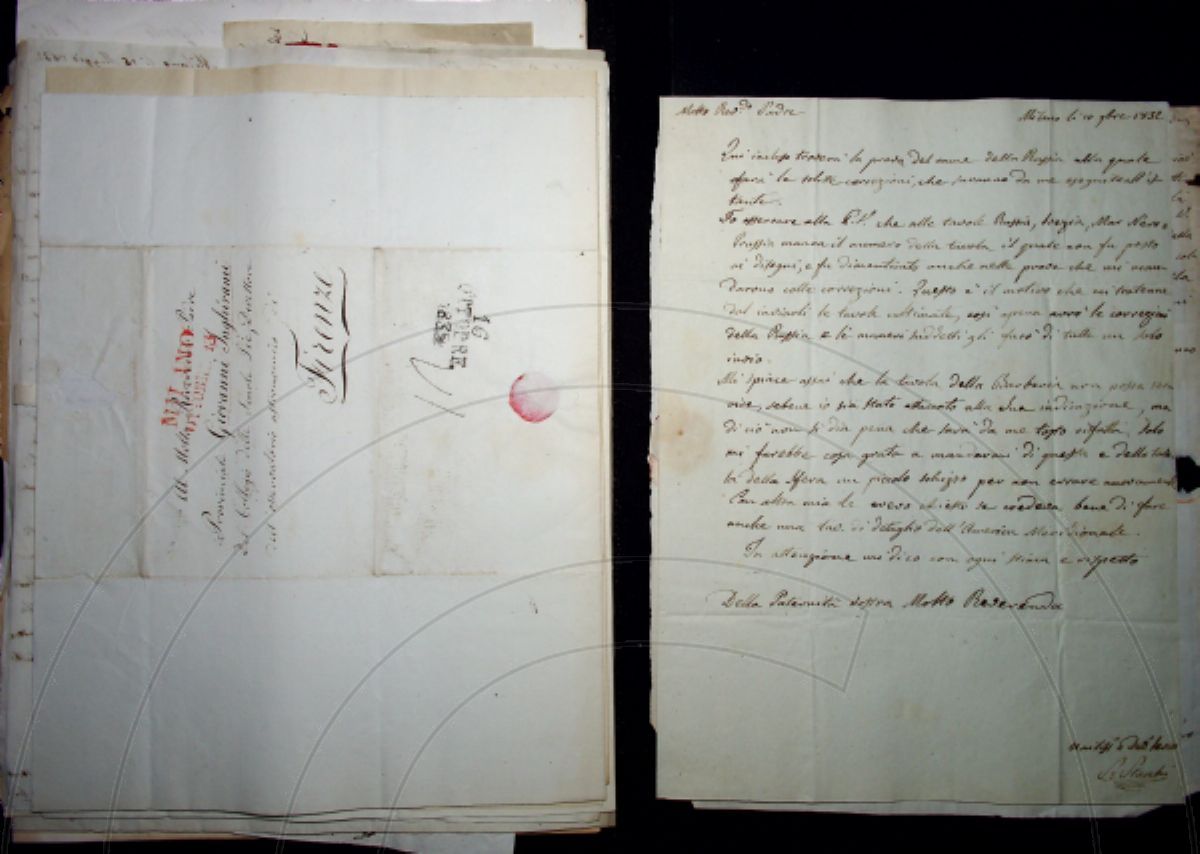 Milano li 15 Maggio 1832
Al Molto Reverendo Padre
Provinciale Giovanni Inghirami
del Collegio delle Scuole Pie, Direttore
dell'osservatorio astronomico di
Firenze
MILANO
OTTOBRE
16
OTTOBRE
1832
Molto Rev.do Padre
Milano li 10 9bre 1832
Qui incluso troverà la prova del nome della Russia alla quale
farà le solite correzioni, che saranno da me eseguite all'is
tante.
Fo osservare alla P.V. che alle tavole Russia, Svezia, Mar Nero e
Prussia manca il numero della tavola il quale non fu posto
ai disegni, e fu dimenticato anche nelle prove che mi man
darono colle correzioni. Questo è il motivo che mi trattenne
dal inviarli le tavole ultimate, così apena avrò le correzioni
della Russia e li numeri suddetti gli farò di tutte un solo
invio.
Mi spiace assai che la tavola della Barberia non possa ser
vire, sebene io sia stato attacato alla sua indicazione, ma
di ciò non si dia pena che sarà da me tosto rifatta, solo
mi farebbe cosa grata a mandarmi di questa e della tavo
la della Sfera un piccolo schizzo per non errare nuovamente
Con altra mia le avevo chiesto se credeva bene di fare
anche una tav. di detaglio dell'America Meridionale.
In attenzione mi dico con ogni stima e rispetto
Della Paternità vostra Molto Reverenda